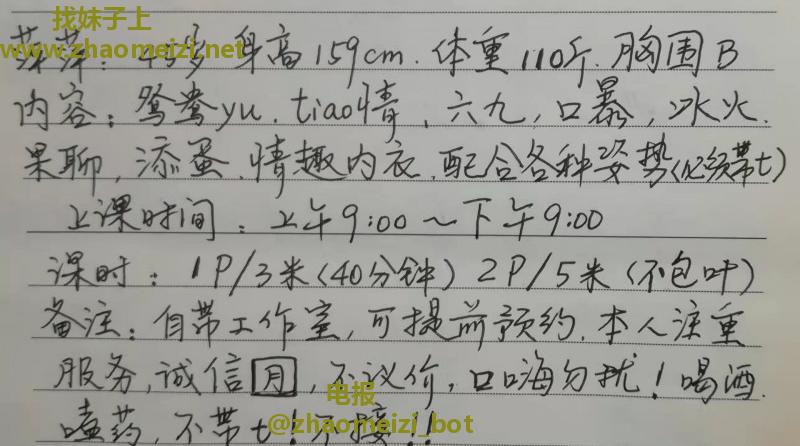 找妹子上
www.zhaomeizi.net
萍萍：45岁 身高159cm. 体重110斤. 胸围B
内容：鸳鸯yu. tiao情, 六九, 口暴, 冰火.
果聊, 添蛋, 情趣内衣, 配合各种姿势(必须带t)
上课时间：上午9:00～下午9:00
课时：1P/3米(40分钟) 2P/5米(不包叶)
备注：自带工作室, 可提前预约, 本人注重
服务, 诚信月, 不议价, 口嗨勿扰！喝酒.
嗑药, 不带t！不接！！
电报
@zhaomeizi_bot